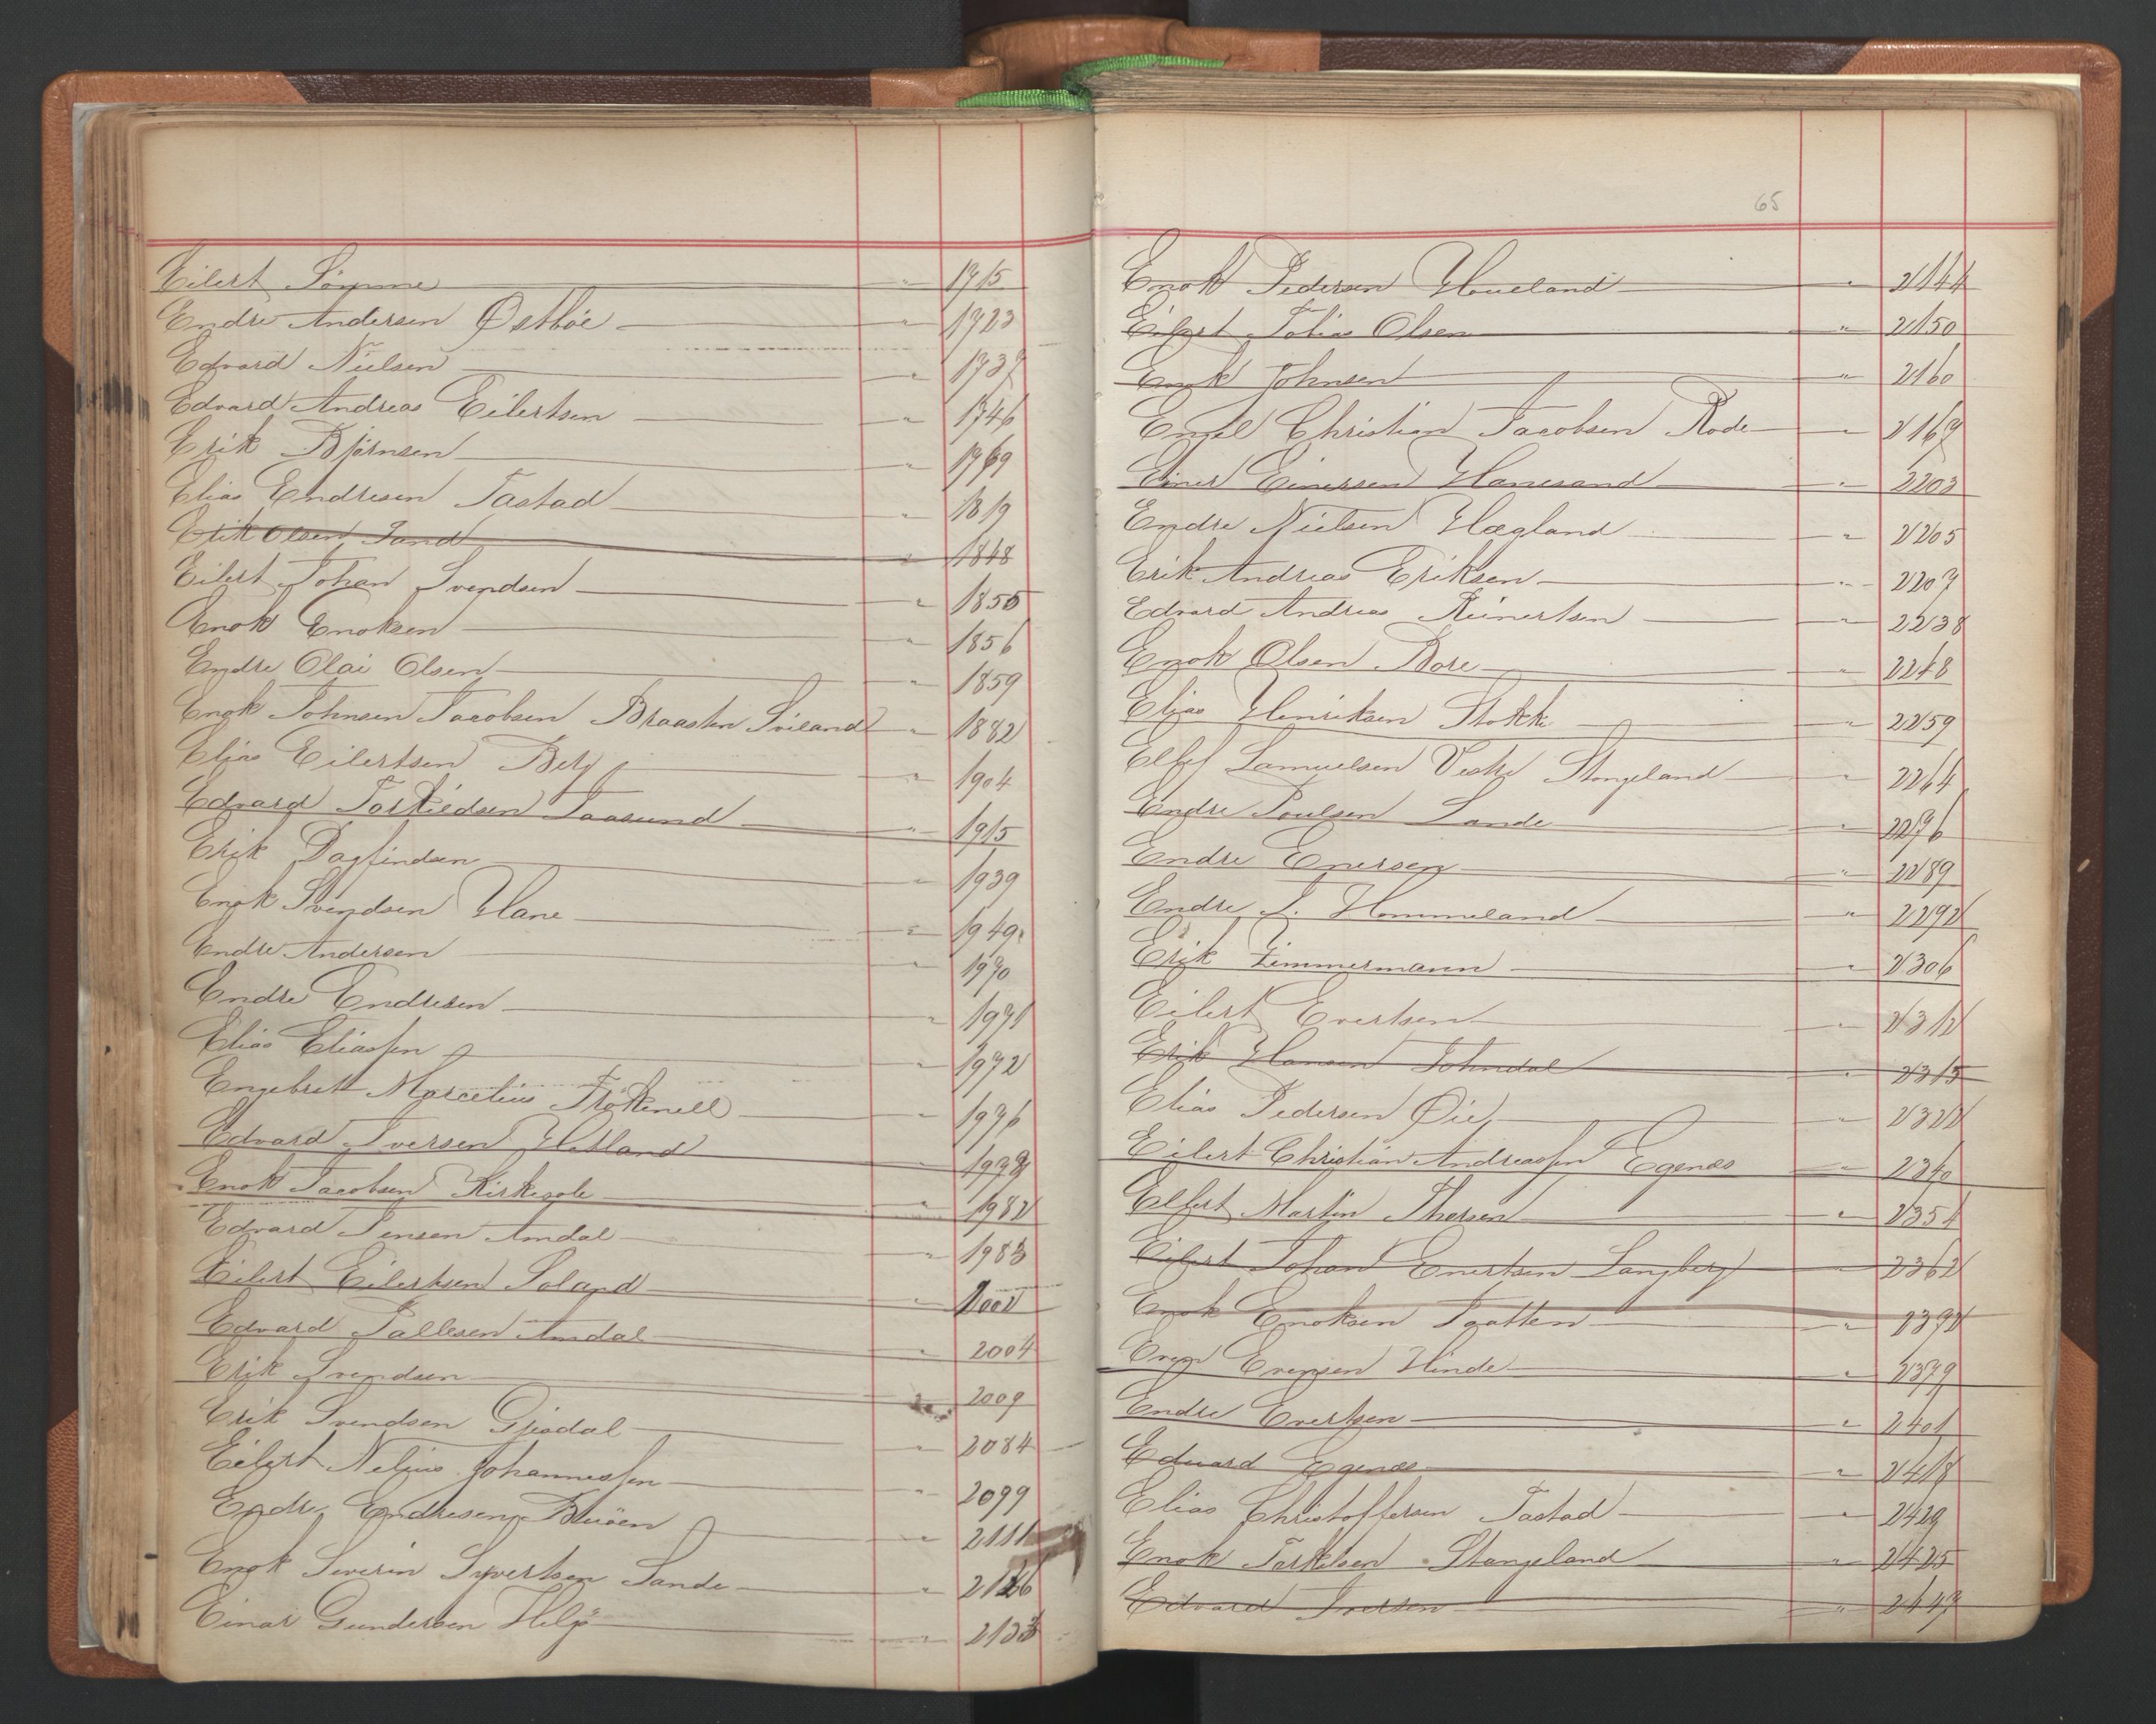 Eilert Sømme " 1715
Endre Andersen Østbøe " 1723
Edvard Nielsen " 1737
Edvard Andreas Eilertsen " 1746
Erik Bjørnsen " 1769
Elias Endresen Tastad " 1819
Erik Olsen Sand " 1848
Eilert Johan Svendsen " 1855
Enok Enoksen " 1856
Endre Olai Olsen " 1859
Enok Johnsen Jacobsen Braasten Sviland " 1882
Elias Eilertsen Berg " 1904
Edvard Torkildsen Taasund " 1915
Erik Dagfindsen " 1939
Enok Svendsen Hane " 1949
Endre Andersen " 1970
Endre Endresen " 1971
Elias Eliassen " 1972
Engebrett Marcelius 1976
Edvard Iversen Hetland " 1978
Enok Jacobsen " 1982
Edvard Jensen Amdal " 1983
Eilert Eilertsen Soland " 2002
Edvard Pallesen Amdal " 2004
Erik Svendsen " 2009
Erik Svendsen Gjesdal " 2084
Eilert Nelius Johannessen " 2099
Endre Endresen " 2111
Enok Severin Syvertsen Sande " 2126
Einar Gundersen " 2133
65
Enok Pedersen Haueland " 2144
Eilert Tobias Olsen " 2150
Enok Johnsen " 2160
Emil Christian Jacobsen Rode " 2167
Einer Einersen Hanesand " 2203
Endre Nielsen Hægland " 2205
Erik Andreas Eriksen " 2207
Edvard Andreas Reinertsen " 2238
Enok Olsen Bore " 2248
Elias Henriksen Stokke " 2259
Ellef Samuelsen Vestre Stangeland " 2264
Endre Poulsen Lande " 2276
Endre Enersen " 2289
Endre J. Hommeland " 2292
Erik Zimmermann " 2306
Eilert Evertsen " 2312
Erik Hansen Johndal " 2315
Elias Pedersen Øie " 2322
Eilert Christian Andreassen Egenæs " 2340
Elfert Martin Thorsen " 2354
Eilert Johan Enertsen Langberg " 2362
Enok Enoksen Taatten " 2372
Even Evensen Hinde " 2379
Endre Evertsen " 2401
Edvard Egenæs " 2418
Elias Christoffersen Tastad " 2429
Enok Torkilsen Stangeland " 2425
Edvard Iversen " 2447